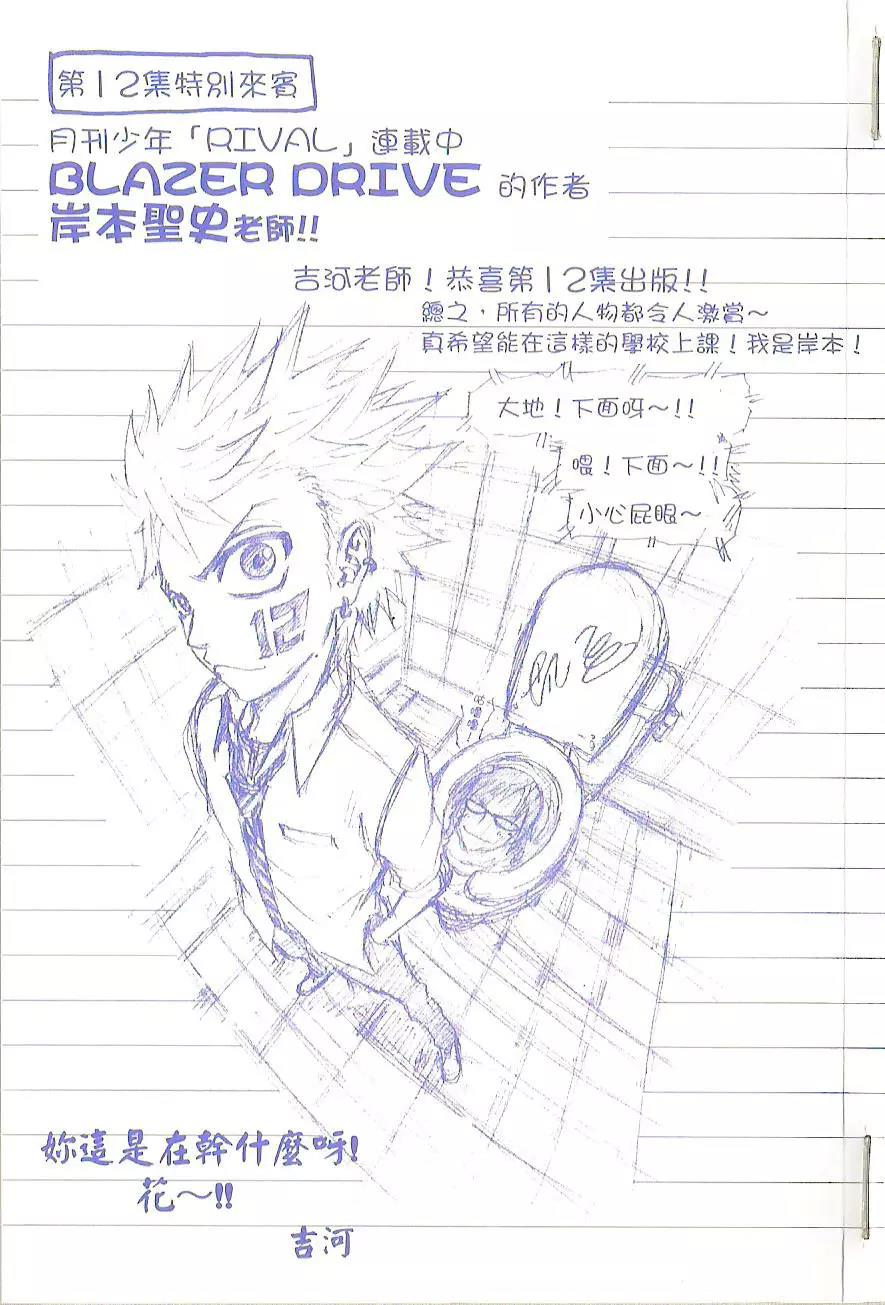 第12集特別來賓
月刊少年「RIVAL」連載中
BLAZER DRIVE 的作者
岸本聖史老師!!
吉河老師！恭喜第12集出版!!
總之，所有的人物都令人激賞～
真希望能在這樣的學校上課！我是岸本！
大地！下面呀～!!
喂！下面～!!
小心屁眼～
12
妳這是在幹什麼呀!
花～!!
吉河